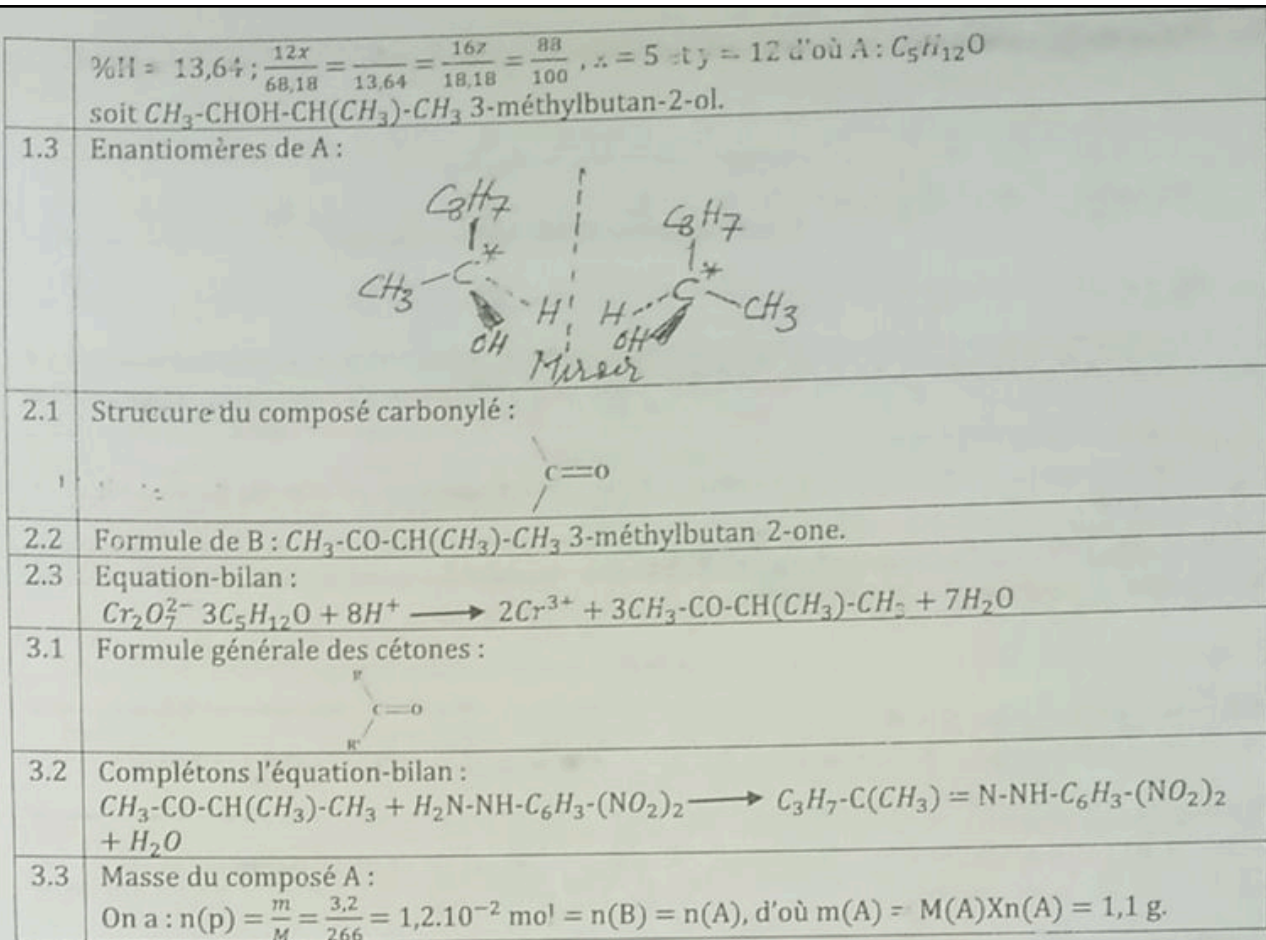 %H = 13,64 ; 12x/68,18 = /13,64 = 16z/18,18 = 88/100 , x = 5 et y = 12 d'où A : C₅H₁₂O
soit CH₃-CHOH-CH(CH₃)-CH₃ 3-méthylbutan-2-ol.
1.3 Enantiomères de A :
C₃H₇ C₃H₇
CH₃ C* H H C* CH₃
OH OH
Miroir
2.1 Structure du composé carbonylé :
C=O
2.2 Formule de B : CH₃-CO-CH(CH₃)-CH₃ 3-méthylbutan 2-one.
2.3 Equation-bilan :
Cr₂O₇²⁻ 3C₅H₁₂O + 8H⁺ ⟶ 2Cr³⁺ + 3CH₃-CO-CH(CH₃)-CH₃ + 7H₂O
3.1 Formule générale des cétones :
R
C=O
R'
3.2 Complétons l'équation-bilan :
CH₃-CO-CH(CH₃)-CH₃ + H₂N-NH-C₆H₃-(NO₂)₂ ⟶ C₃H₇-C(CH₃) = N-NH-C₆H₃-(NO₂)₂
+ H₂O
3.3 Masse du composé A :
On a : n(p) = m/M = 3,2/266 = 1,2.10⁻² mol = n(B) = n(A), d'où m(A) = M(A)Xn(A) = 1,1 g.